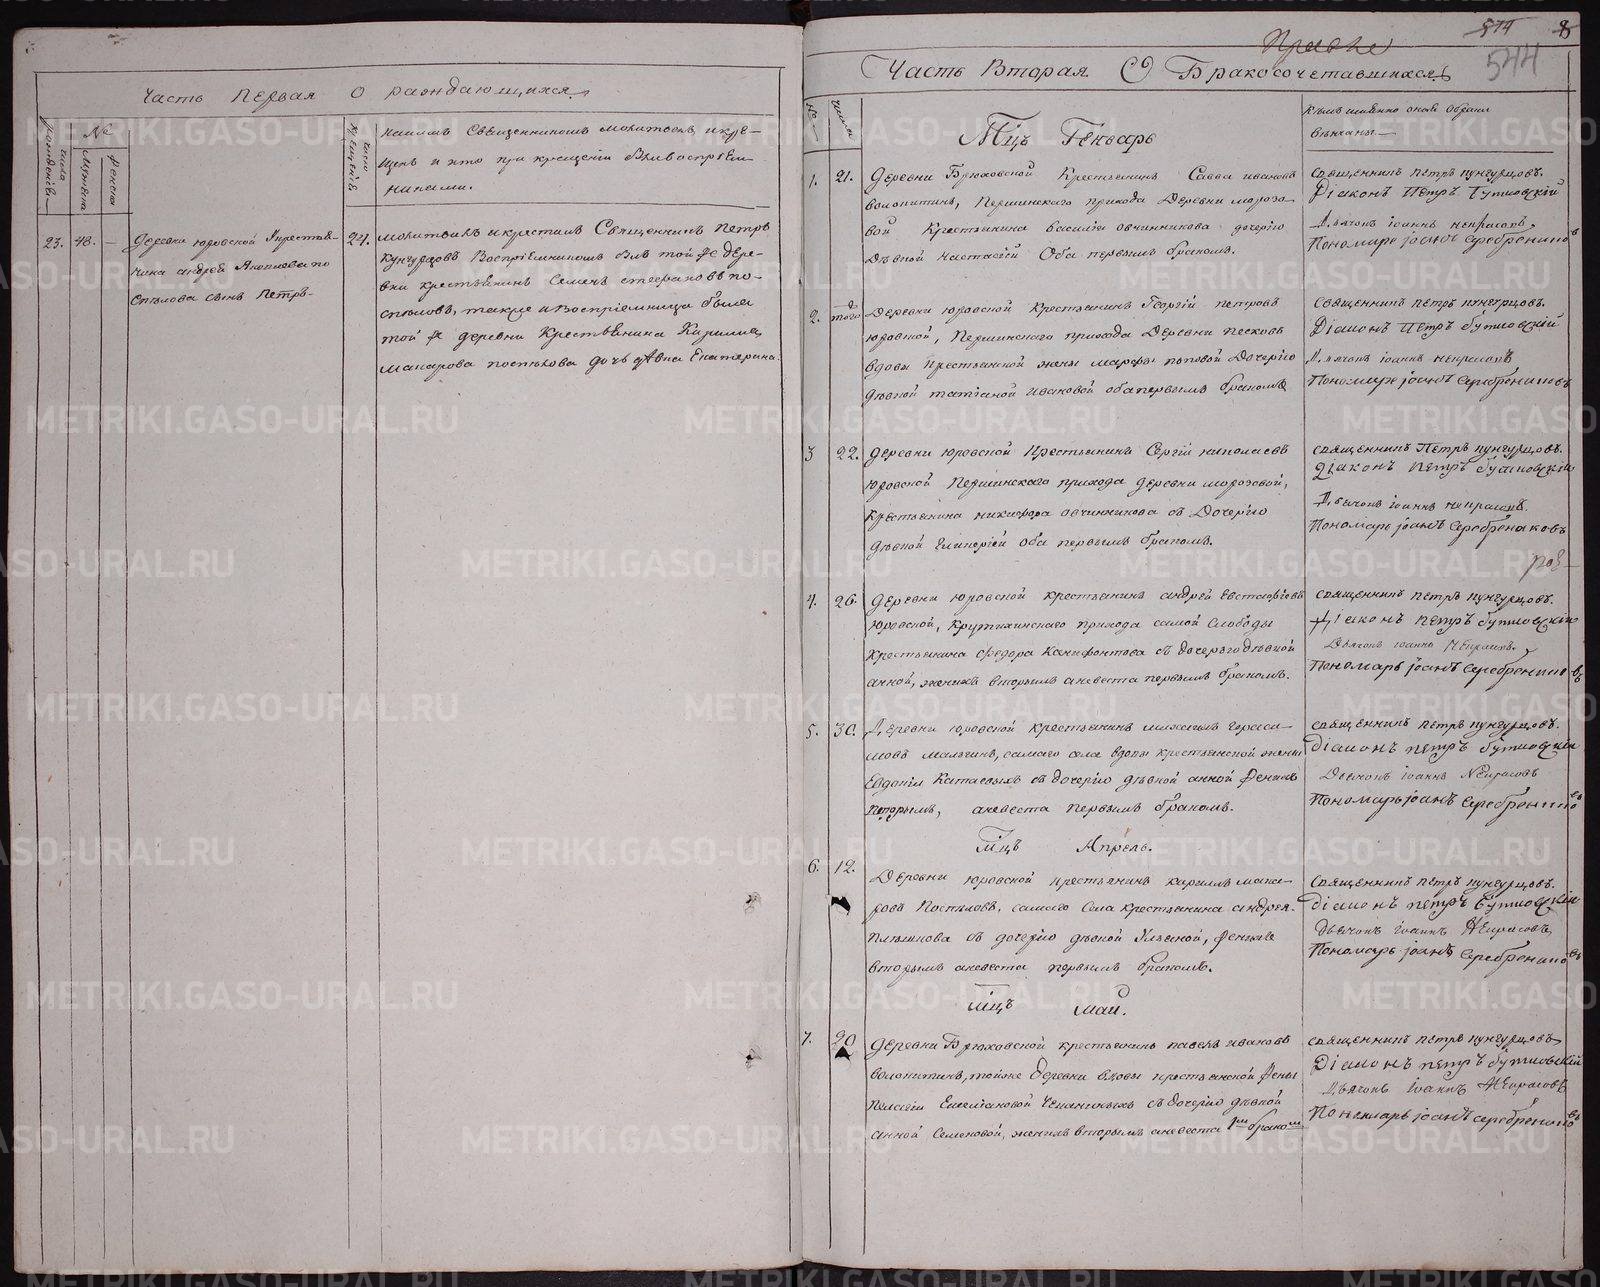 Часть Первая О раждающихся
числа рожденiя
№
Мужска
Женска
число крещенiя
Деревни юровской крестьян-
нина андрей
сынъ Петръ
23. 48. —
24.
кѣмъ Священникомъ молитвенъ и кре-
щенъ и кто при крещенiи былъ воспрiем-
никами.
молитвилъ и крестилъ Священникъ Петръ
кунгурцовъ Воспрiемникомъ былъ той же дере-
вни крестьянинъ Семенъ стефановъ по-
спѣловъ, также и воспрiемница была
той же деревни Крестьянина Кирилла
макарова поспѣлова дочь дѣвка Екатерина.
574 8
544
Часть Вторая О Бракосочетавшихся
№
числа
Мцъ Генварь
кѣмъ имянно оные браки
вѣнчаны.—
1. 21. Деревни Брюховской Крестьянинъ Савва ивановъ
волокитинъ, Першинскаго прихода Деревни морозо-
вой Крестьянина василiя овчинникова дочерiю
Дѣвкой настасiей Оба первымъ бракомъ.
священникъ петръ кунгурцовъ.
Дiаконъ Петръ Бутковскiй
Дьячокъ iоаннъ некрасовъ
Пономарь iоаннъ серебрениковъ
2. того Деревни юровской Крестьянинъ Георгiй петровъ
юровской, Першинскаго прихода Деревни песковъ
вдовы крестьянской жены марфы поповой Дочерiю
дѣвкой татiаной ивановой оба первымъ бракомъ
священникъ петръ кунгурцовъ.
Дiаконъ Петръ бутковскiй
Дьячокъ iоаннъ некрасовъ
Пономарь iоаннъ серебрениковъ
3 22. деревни юровской крестьянинъ Сергiй николаевъ
юровской Першинскаго прихода деревни морозовой,
крестьянина никифора овчинникова съ Дочерiю
дѣвкой Гликерiей оба первымъ бракомъ.
священникъ Петръ кунгурцовъ.
Дiаконъ петръ бутковскiй
Дьячокъ iоаннъ некрасовъ.
Пономарь iоаннъ серебренаковъ
4. 26. деревни юровской крестьянинъ андрей евстафiевъ
юровской, крутихинскаго прихода самой слободы
крестьянина федора Канифонтова съ дочерью дѣвкой
анной, женихъ вторымъ а невеста первымъ бракомъ.
священникъ петръ кунгурцовъ.
дiаконъ петръ бутковскiй
Дьячокъ iоаннъ некрасовъ.
Пономарь iоаннъ серебрениковъ
5. 30. Деревни юровской крестьянинъ михаилъ гераси-
мовъ малыгинъ, самаго села вдовы крестьянской жены
Евдокiи Катаевыхъ съ дочерiю дѣвкой анной женихъ
вторымъ, а невеста первымъ бракомъ.
священникъ петръ кунгурцовъ.
дiаконъ петръ бутковскiй
Дьячокъ iоаннъ Некрасовъ
Пономарь iоаннъ серебрениковъ
Мцъ Апрѣль.
6. 12. Деревни юровской крестьянинъ кириллъ мака-
ровъ Поспѣловъ, самаго села крестьянина андрея
плѣшкова съ дочерiю дѣвкой Ульяной, женихъ
вторымъ а невеста первымъ бракомъ.
священникъ петръ кунгурцовъ.
дiаконъ петръ бутковскiй
Дьячокъ iоаннъ Некрасовъ,
Пономарь iоаннъ серебрениковъ
Мцъ май.
7. 20 деревни Брюховской крестьянинъ павелъ ивановъ
волокитинъ, той же деревни вдовы крестьянской жены
съ дочерiю дѣвкой
анной Семеновой, женихъ вторымъ а невеста 1мъ бракомъ
священникъ петръ кунгурцовъ
Дiаконъ петръ бутковскiй
Дьячокъ iоаннъ Некрасовъ
Пономарь iоаннъ серебрениковъ
METRIKI.GASO-URAL.RU